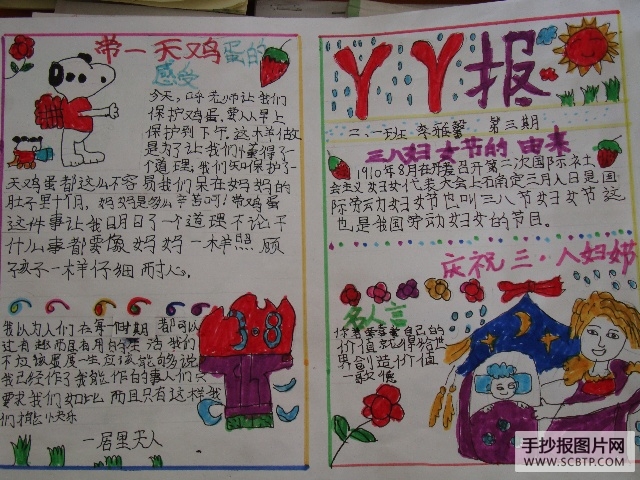 带一天鸡蛋的
感受
今天，呼老师让我们
保护鸡蛋，要从早上
保护到下午，这样做
是为了让我们懂得了一
个道理。我们知保护了一
天鸡蛋都这么不容易我们呆在妈妈的
肚子里十个月，妈妈是多么辛苦呵！带鸡蛋
这件事让我明日了一个道理不论干
什么事都要像妈妈一样照顾
孩子一样仔细耐心。
我以为人们在每一个时期都可以
过有趣而且有用的生活我们
不应该虚度一生应该能够说
我已经作了我能作的事人们只
要求我们如此而且只有这样我
们才能小天乐
一居里夫人
丫丫报
二·一班 李雅馨 第三期
三八妇女节的由来
1910年8月在丹麦召开第二次国际社
会主义妇女代表大会上右南定三月八日是国
际劳动妇女妇女节也叫三八节妇女节这
也是我国劳动妇女的节目。
庆祝三·八妇女节
名人言
自己的
价值就得给世
界创造价值
一歌德
3·8
手抄报图片网
WWW.SCBTP.COM